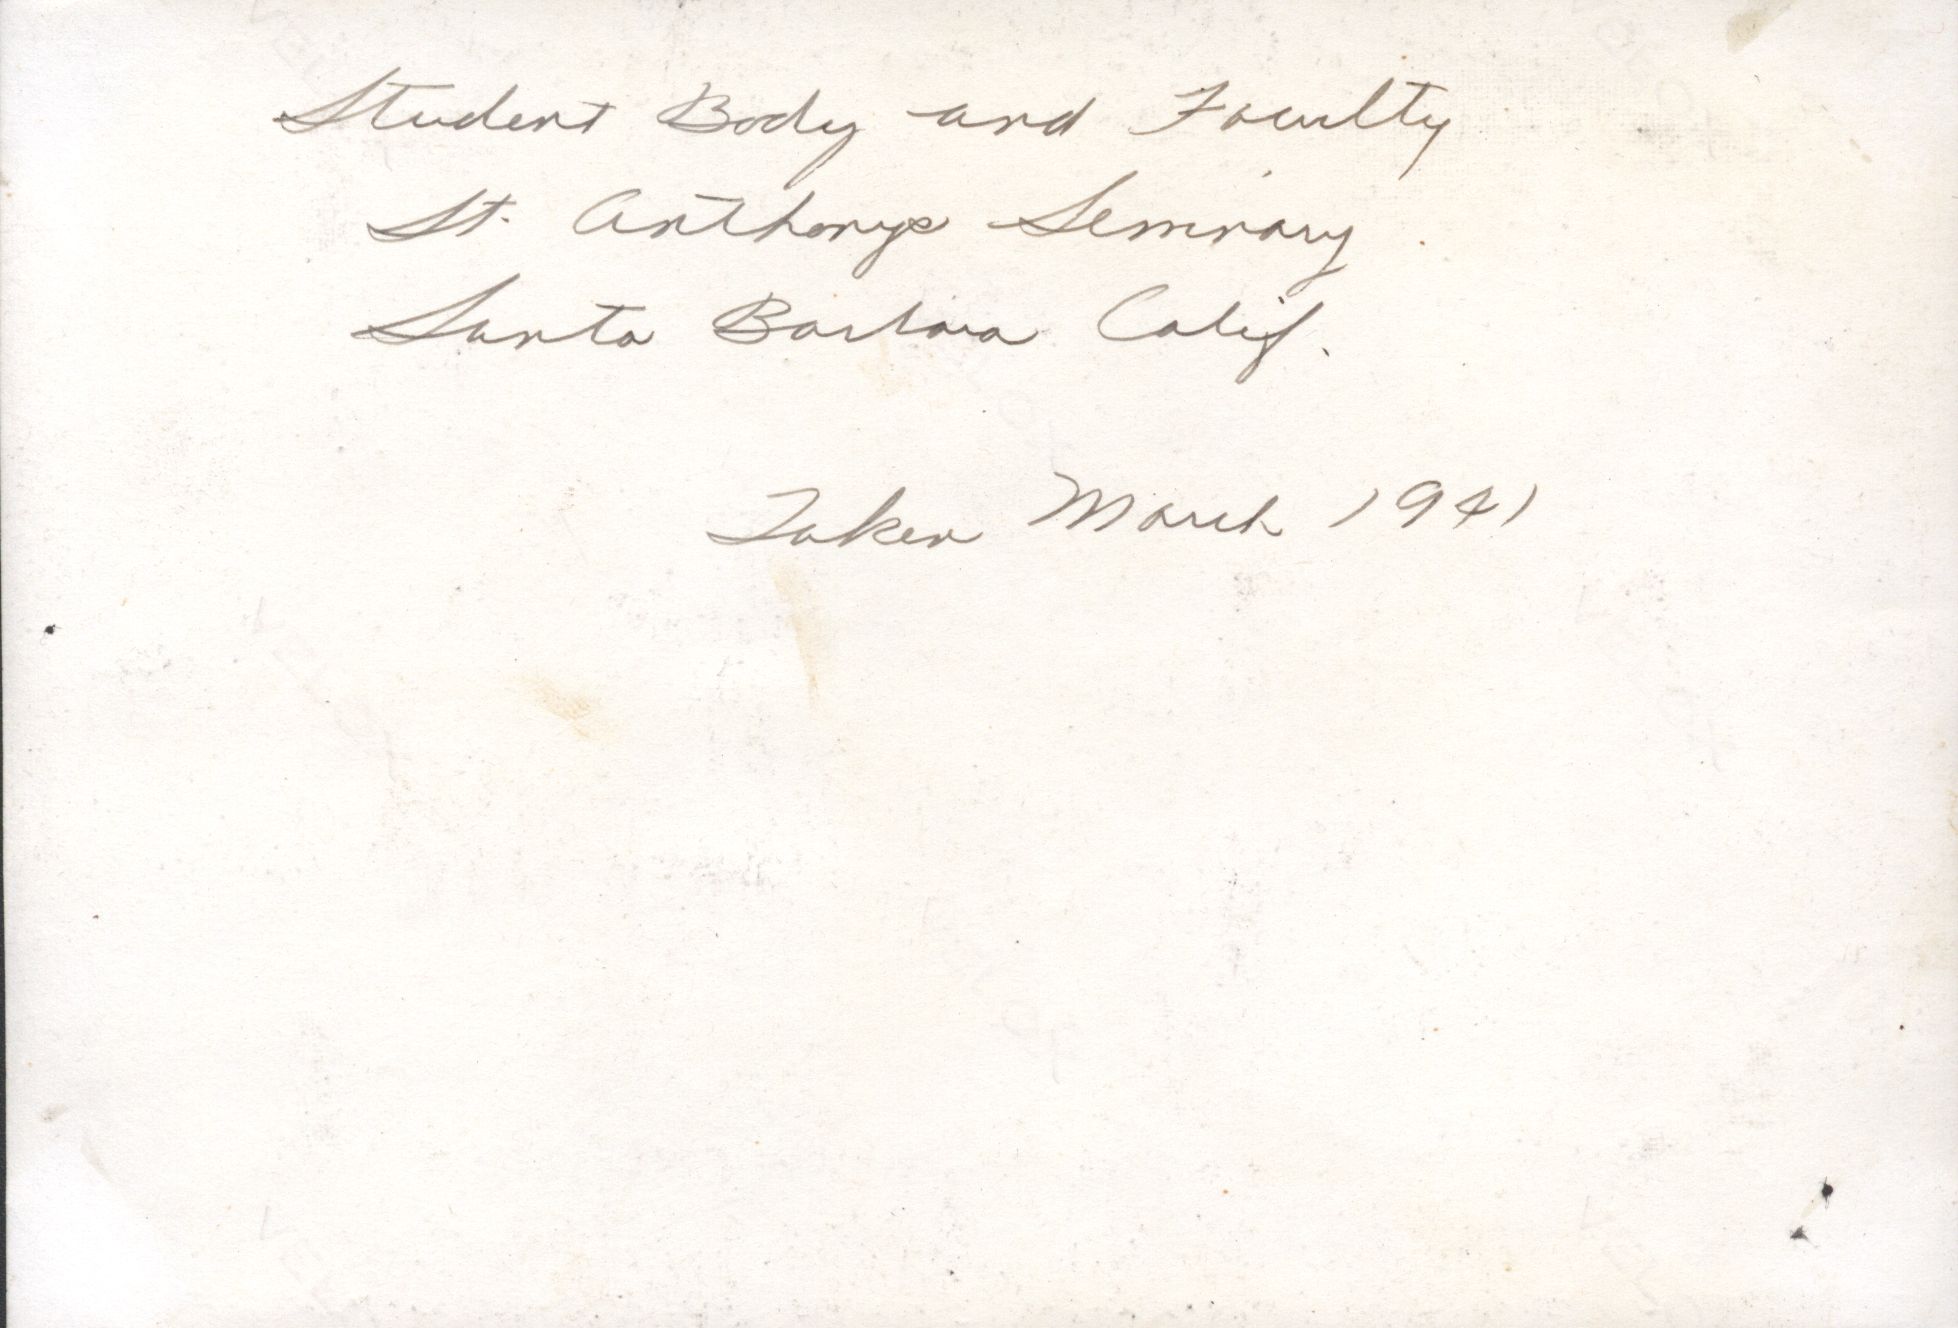 Student Body and Faculty
St. Anthonys Seminary
Santa Barbara Calif.
Taken March 1941